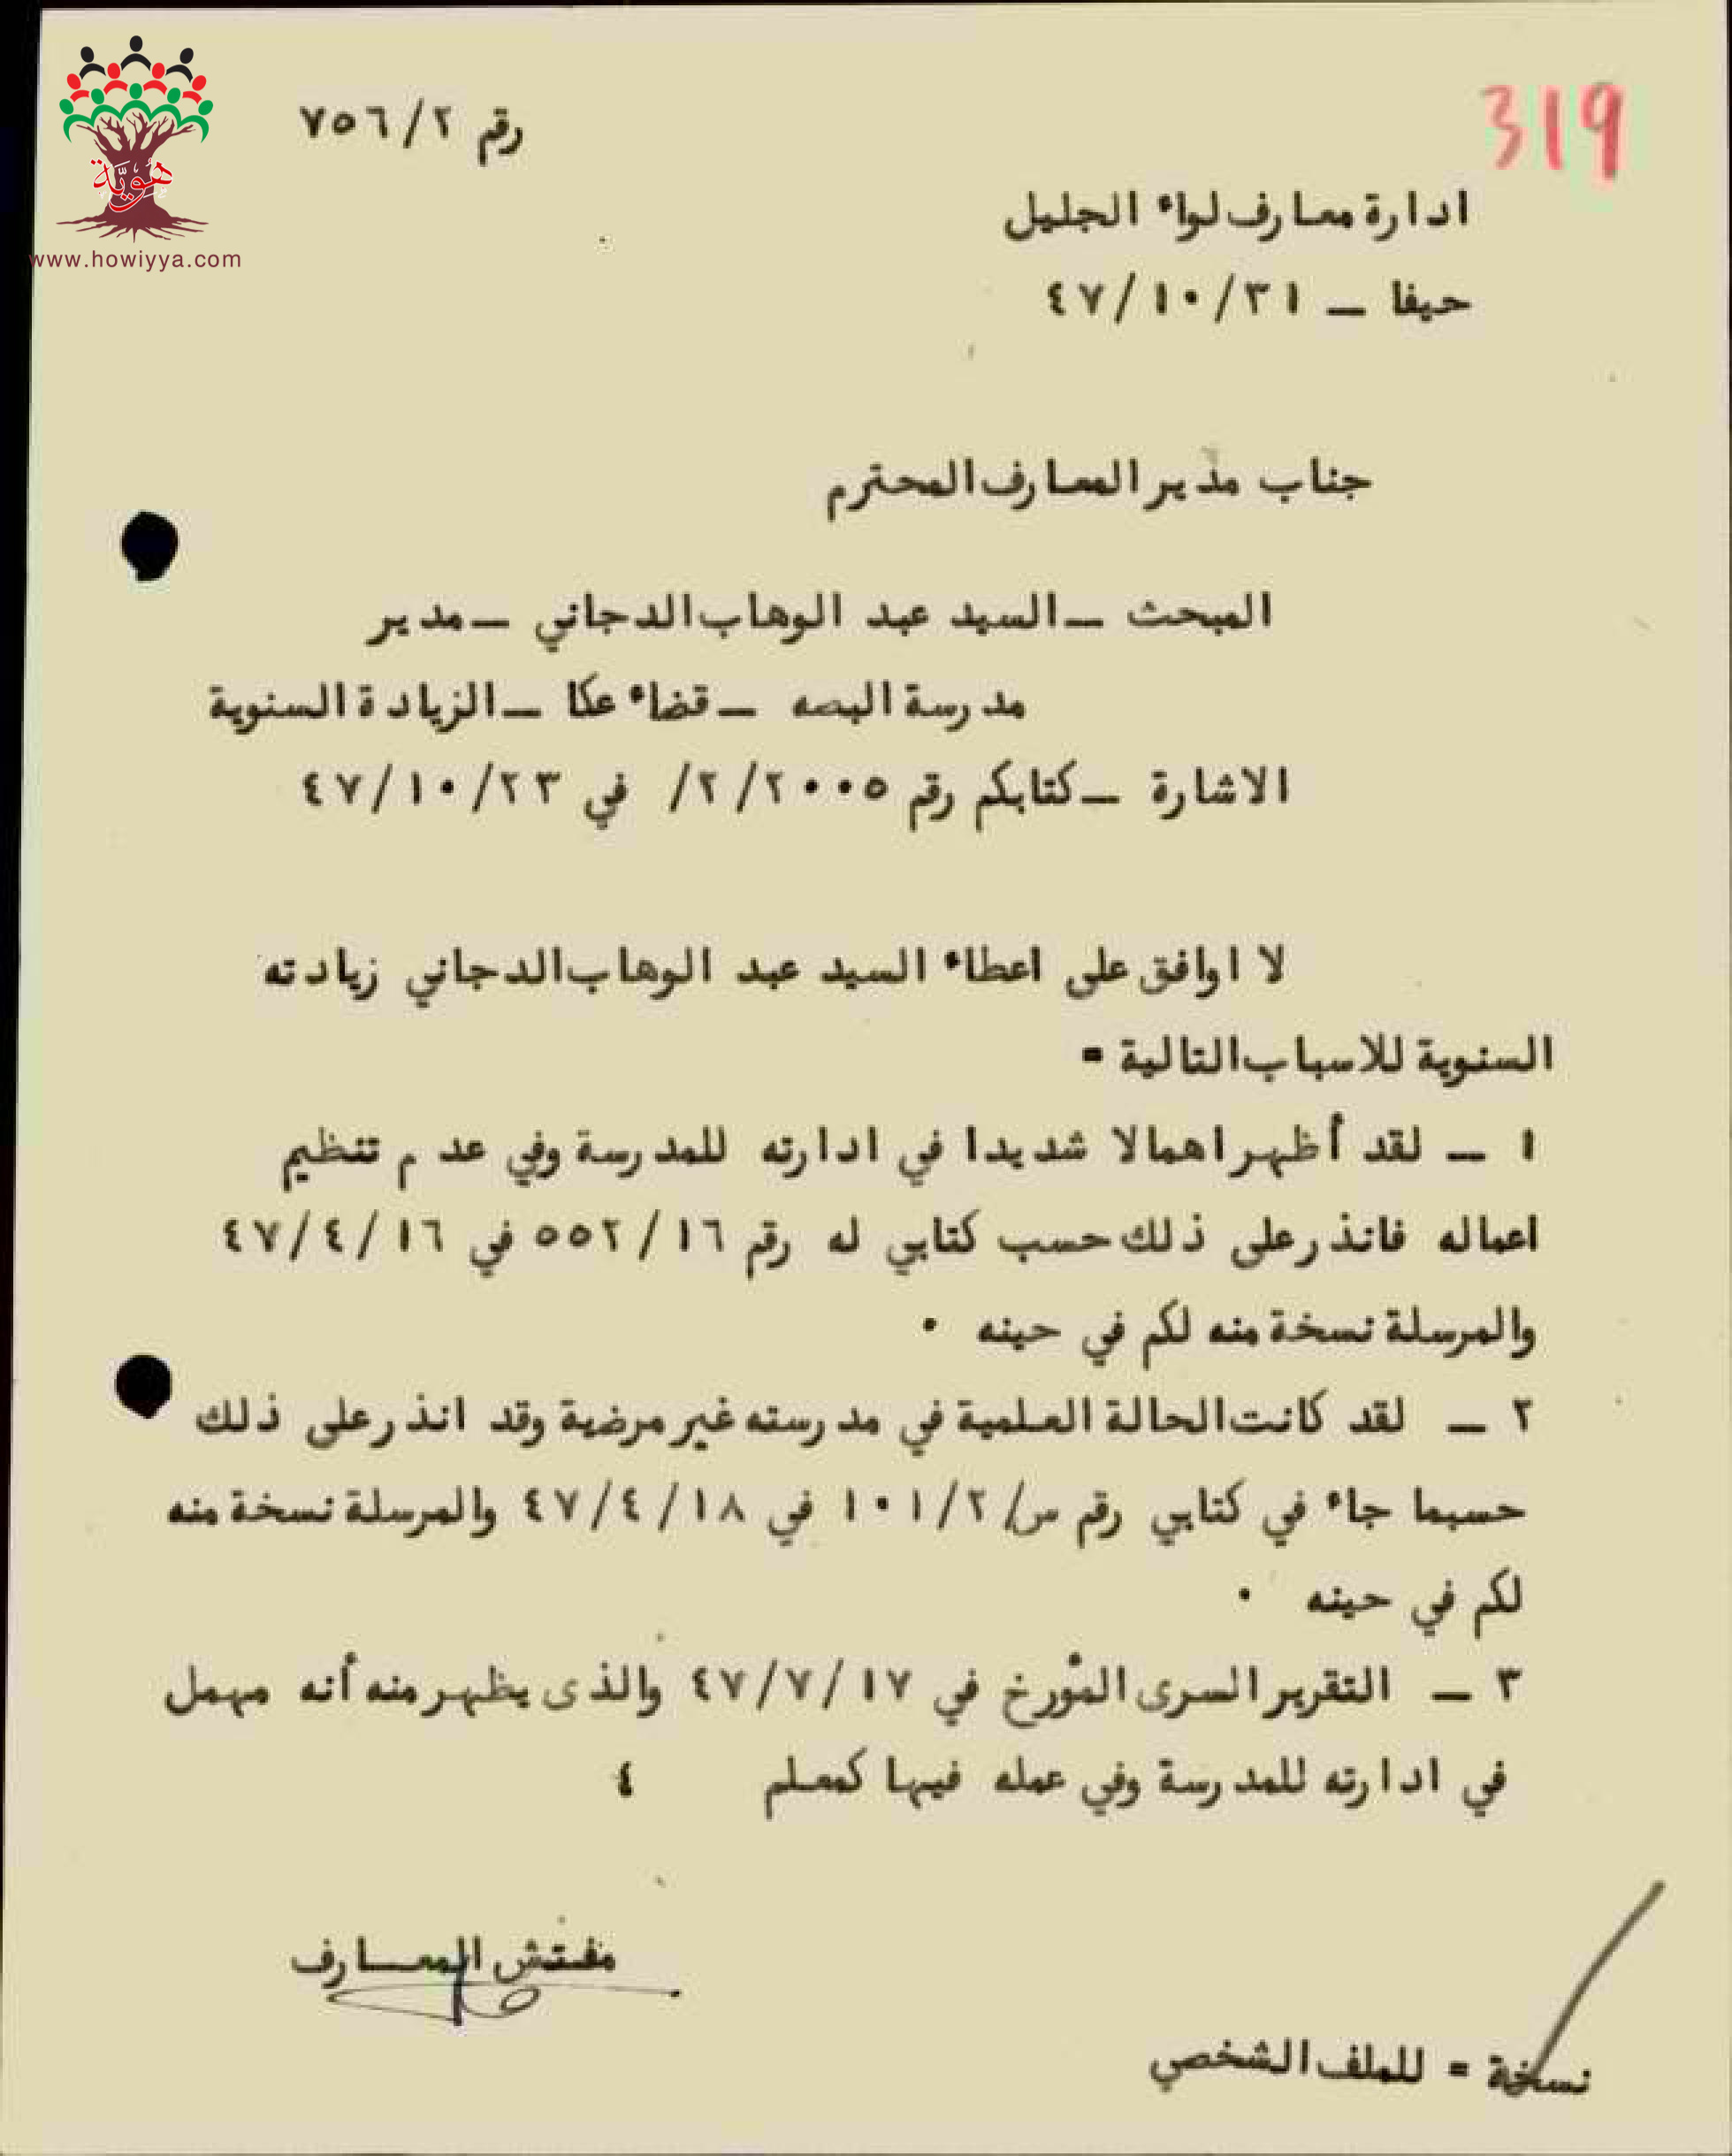 هوية
www.howiyya.com
319
رقم ٧٥٦/٢
ادارة معارف لواء الجليل
حيفا ــ ٤٧/١٠/٣١
جناب مدير المعارف المحترم
المبحث ــ السيد عبد الوهاب الدجاني ــ مدير
مدرسة البصه ــ قضاء عكا ــ الزيادة السنوية
الاشارة ــ كتابكم رقم ٢/٢٠٠٥/ في ٤٧/١٠/٢٣
لا اوافق على اعطاء السيد عبد الوهاب الدجاني زيادته
السنوية للاسباب التالية =
١ ــ لقد أظهر اهمالا شديدا في ادارته للمدرسة وفي عدم تنظيم
اعماله فانذر على ذلك حسب كتابي له رقم ٥٥٢/١٦ في ٤٧/٤/١٦
والمرسلة نسخة منه لكم في حينه ٠
٢ ــ لقد كانت الحالة العلمية في مدرسته غير مرضية وقد انذر على ذلك
حسبما جاء في كتابي رقم س/١٠١/٢ في ٤٧/٤/١٨ والمرسلة نسخة منه
لكم في حينه ٠
٣ ــ التقرير السرى المؤرخ في ٤٧/٧/١٧ والذى يظهر منه أنه مهمل
في ادارته للمدرسة وفي عمله فيها كمعلم ٤
مفتش المعارف
نسخة = للملف الشخصي